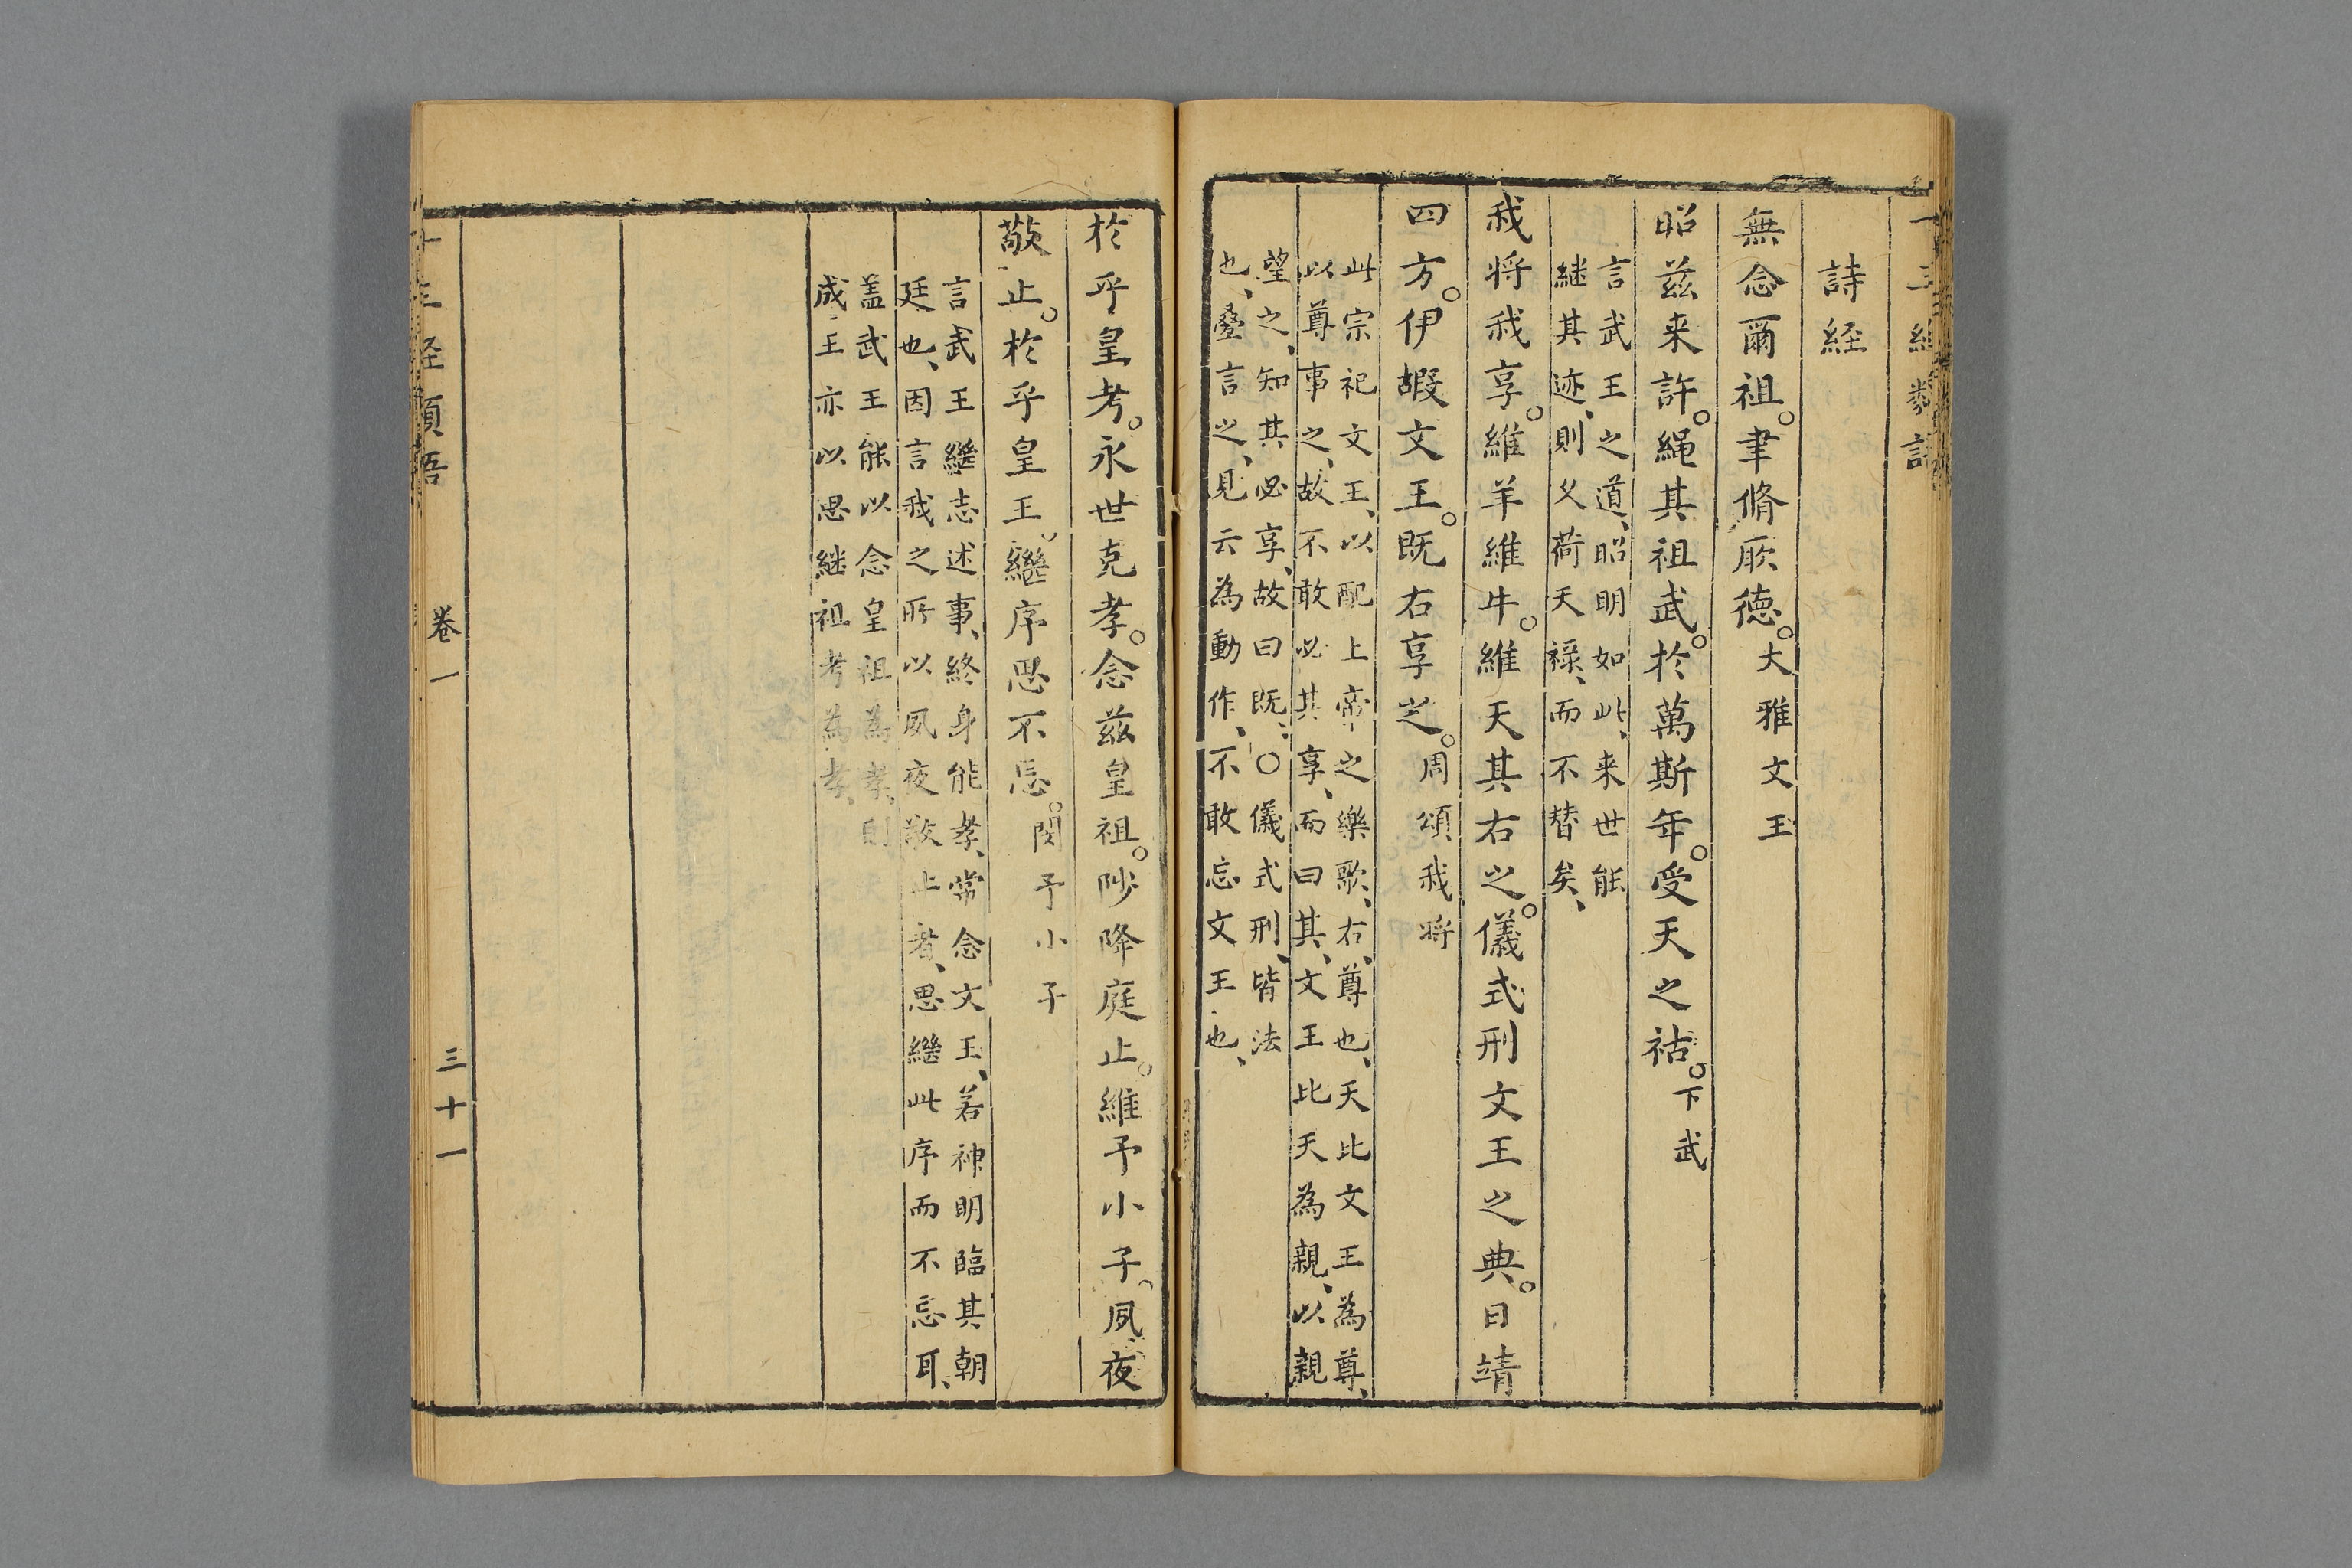 詩経
無念爾祖。聿脩厥徳。大雅文王
昭茲来許。繩其祖武。於萬斯年。受天之祜。下武
言武王之道、昭明如此、来世能
継其迹、則久荷天禄、而不替矣、
我将我享。維羊維牛。維天其右之。儀式刑文王之典。日靖
四方。伊嘏文王。既右享之。周頌我将
此宗祀文王、以配上帝之樂歌、右、尊也、天比文王為尊、
以尊事之、故不敢必其享、而曰其、文王比天為親、以親
望之、知其必享、故曰既、〇儀式刑、皆法
也、疊言之、見云為動作、不敢忘文王也、
於乎皇考。永世克孝。念茲皇祖。陟降庭止。維予小子。夙夜
敬止。於乎皇王。繼序思不忘。閔予小子
言武王繼志述事、終身能孝、常念文王、若神明臨其朝
廷也、因言我之所以夙夜敬止者、思繼此序而不忘耳、
盖武王能以念皇祖為孝、則
成王亦以思継祖考為孝、
十三経類語 卷一 三十一